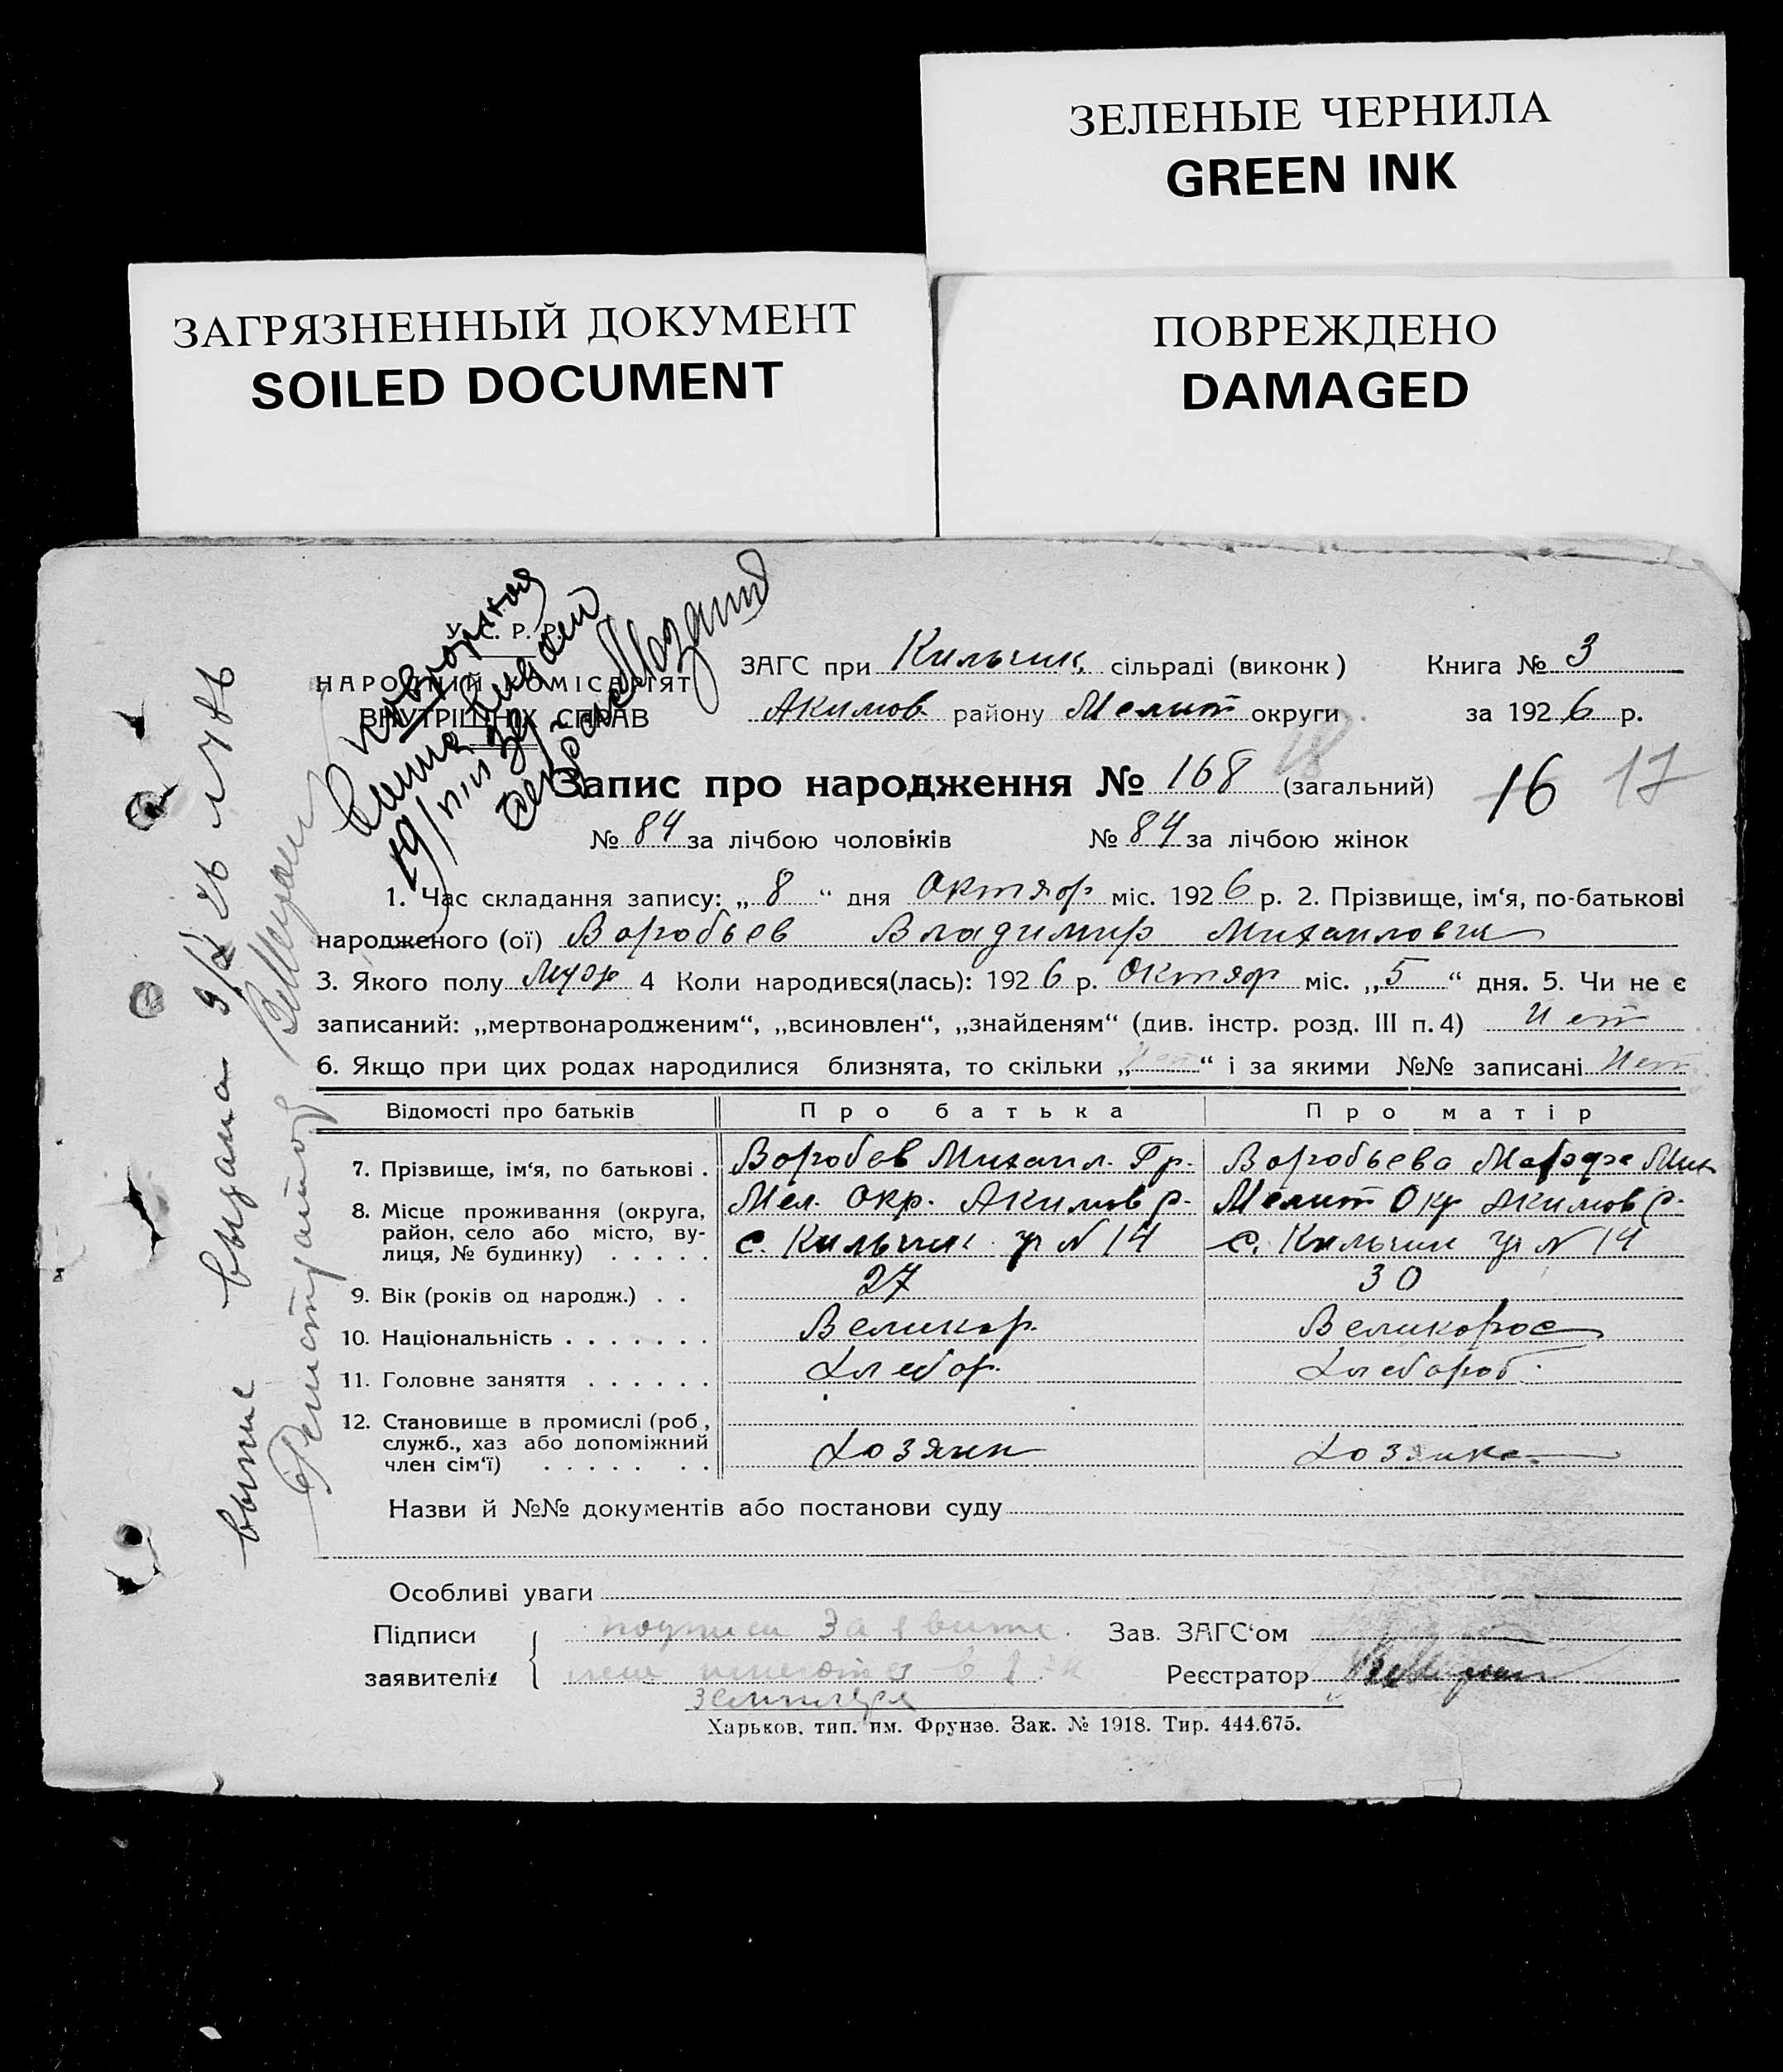 ЗЕЛЕНЫЕ ЧЕРНИЛА
GREEN INK
ЗАГРЯЗНЕННЫЙ ДОКУМЕНТ
SOILED DOCUMENT
ПОВРЕЖДЕНО
DAMAGED
У. С. Р. Р.
НАРОДНИЙ КОМІСАРІЯТ
ВНУТРІШНІХ СПРАВ
ЗАГС при Кильчик. сільраді (виконк)
Книга № 3
Акимов району Мелит округи
за 1926 р.
Запис про народження № 168 (загальний)
16 17
№ 84 за лічбою чоловіків № 84 за лічбою жінок
1. Час складання запису: „ 8 “ дня Октябр міс. 1926 р. 2. Прізвище, ім‘я, по-батькові
народженого (ої) Воробьев Владимир Михаилович
3. Якого полу Муж 4 Коли народився(лась): 1926 р. Октябр міс. „5“ дня. 5. Чи не є
записаний: „мертвонародженим“, „всиновлен“, „знайденям“ (див. інстр. розд. III п. 4) Нет
6. Якщо при цих родах народилися близнята, то скільки „нет“ і за якими №№ записані Нет
Відомості про батьків
Про батька
Про матір
7. Прізвище, ім‘я, по батькові .
Воробев Михаил. Гр.
Воробьева Марфа Мих
8. Місце проживання (округа,
район, село або місто, ву-
лиця, № будинку) . . . . .
Мел. Окр. Акимов р.
с. Кильчик ул N 14
Мелит Окр Акимов р.
с. Кильчик ул N 14
9. Вік (років од народж.) . .
27
30
10. Національність . . . . . . .
Великор.
Великорос
11. Головне заняття . . . . . .
Хлебор.
Хлебороб.
12. Становище в промислі (роб.,
служб., хаз або допоміжний
член сім‘ї) . . . . . . .
Хозяин
Хозяика
Назви й №№ документів або постанови суду
Особливі уваги
Підписи
заявителів
подписи
Зав. ЗАГС‘ом
Реєстратор
Харьков, тип. им. Фрунзе. Зак. № 1918. Тир. 444.675.
выпис выдана
Регистратор